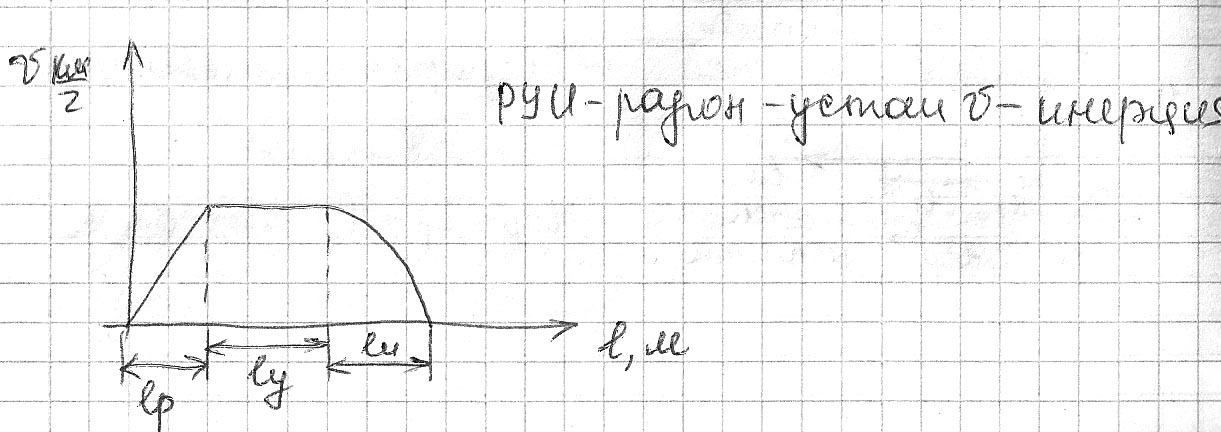 v км
г
РУИ - разгон - устан v - инерция
l, м
lи
lу
lр